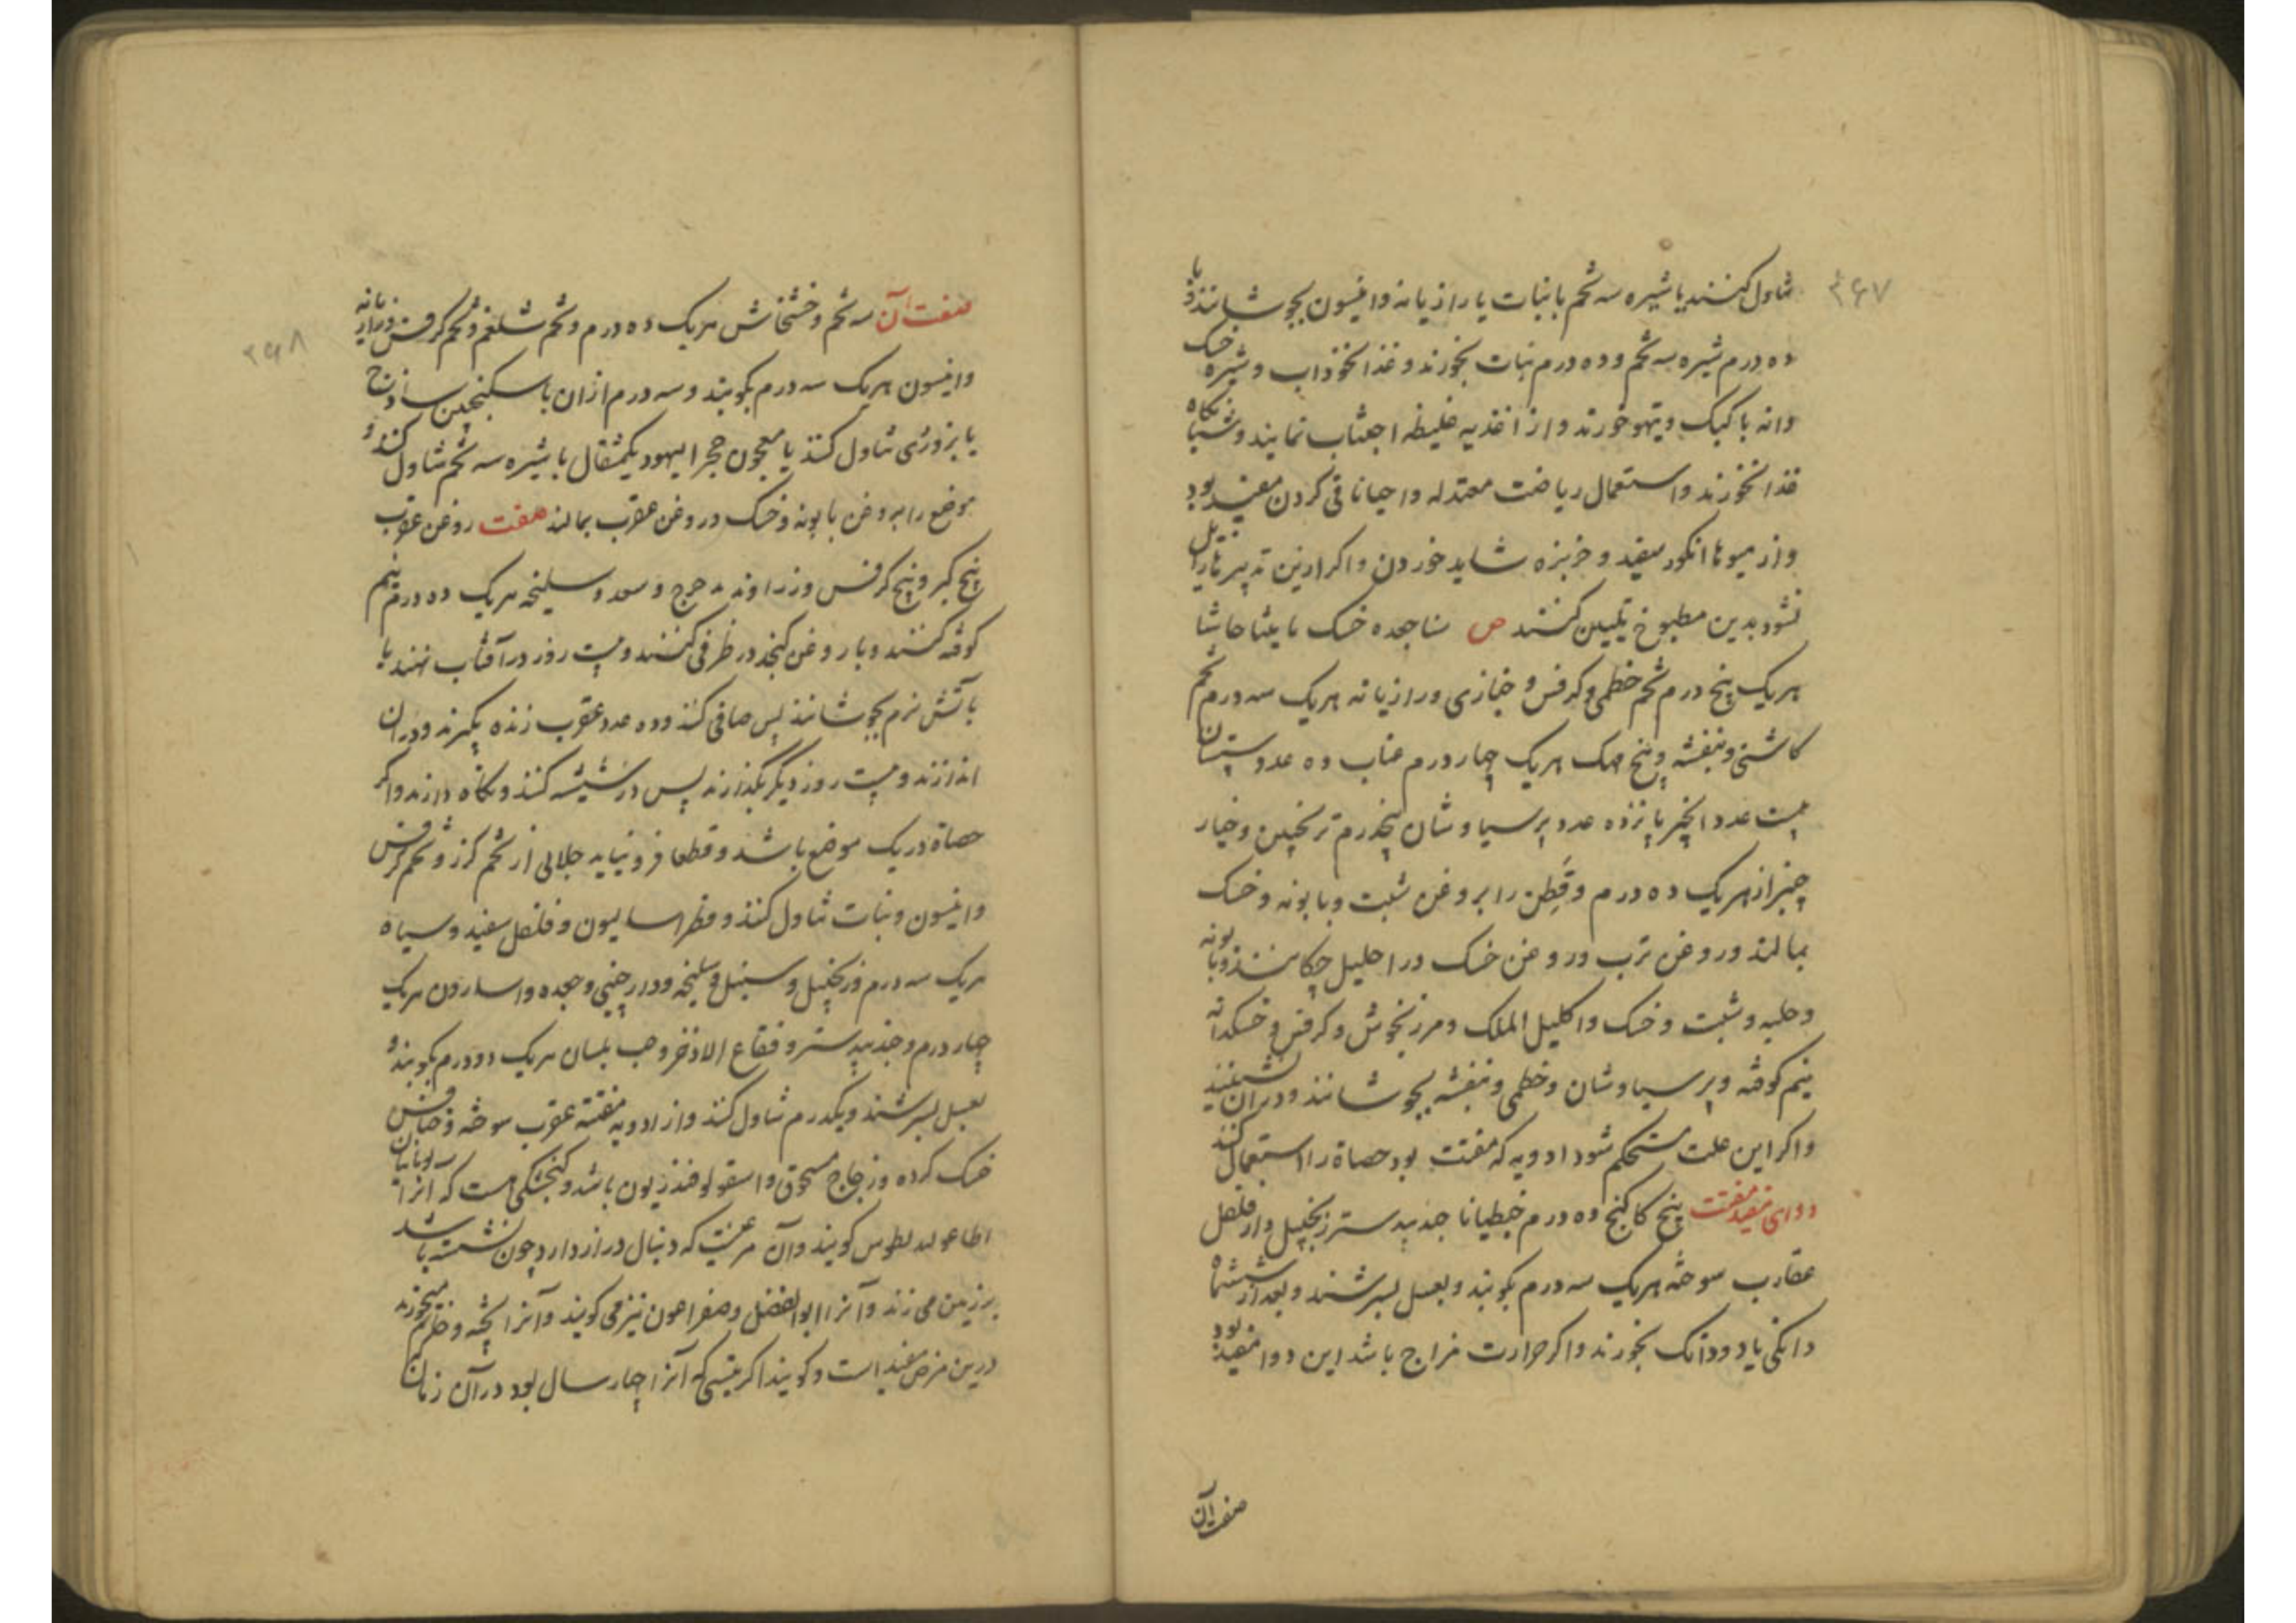 ۳۶۷
تناول کنند یا شیره سه تخم با نبات یا رازیانه و انیسون بجوشانند و با
ده درم شیره سه تخم و ده درم نبات بخورند و غذا نخوداب و شیره خسک
دانه با کبک و تیهو خورند و از اغذیه غلیظه اجتناب نمایند و شبانگاه
غذا نخورند و استعمال ریاضت معتدله و احیانا قی کردن مفید بود
و از میوها انکور سفید و خربزه شاید خوردن و اکر ازین تدبیر زایل
نشود بدین مطبوخ تلیین کنند ص سنا جعده خسک حاشا
هریک پنج درم تخم خطمی و کرفس و خبازی و رازیانه هریک سه درم تخم
کاشنی و بنفشه و پنج مهک هریک چهار درم عناب ده عدد سپستان
بیست عدد انجیر پانزده عدد پرسیاوشان پنجدرم ترنجبین و خیار
چنبر از هریک ده درم و قطن را بروغن شبت و بابونه و خسک
بمالند و روغن ترب و روغن خسک در احلیل چکانند و بابونه
و حلبه و شبت و خسک و اکلیل الملک و مرزنجوش و کرفس و خسکدانه
نیم کوفته و پرسیاوشان و خطمی و بنفشه بجوشانند و در ان نشینند
و اکر این علت مستحکم شود ادویه که مفتت بود حصاة را استعمال کنند
دوای مفید مفتت پنج کاکنج ده درم خبطیانا جندبیدستر زنجبیل دارفلفل
عقارب سوخته هریک سه درم بکوبند و بعسل بسرشند و بعد از ششماه
دانکی یا دو دانک بخورند و اکر حرارت مزاج باشد این دوا مفید بود
صفت آن
۳۶۸
صفت آن سه تخم و خشخاش هریک ده درم و تخم شلغم و تخم کرفس و رازیانه
و انیسون هریک سه درم بکوبند و سه درم از ان با سکنجبین ساذج
یا بزوری تناول کنند یا معجون حجر الیهود یکمثقال با شیره سه تخم تناول کنند و
موضع را بروغن بابونه و خسک و روغن عقرب بمالند صفت روغن عقرب
پنج کبر و پنج کرفس و زراوند مدحرج و سعد و سلیخه هریک ده درم نیم
کوفته کنند و با روغن کنجد در ظرفی کنند و بیست روز در آفتاب نهند یا
باتش نرم بجوشانند پس صافی کنند و ده عدد عقرب زنده بکیرند و در ان
اندازند و بیست روز دیگر بکذارند پس در شیشه کنند و نکاه دارند و اکر
حصاة در یک موضع باشد و قطعا فرو نیاید جلابی از تخم کرز و تخم کرفس
و انیسون و نبات تناول کنند و فطراسالیون و فلفل سفید و سیاه
هریک سه درم و زنجبیل و سنبل و سلیخه و دارچینی و جعده و اسارون هریک
چهار درم و جندبیدستر و فقاع الاذخر و حب بلسان هریک دو درم بکوبند و
بعسل بسرشند و یکدرم تناول کنند و از ادویه مفتته عقرب سوخته و خنافس
خسک کرده و زجاج مسحوق و اسقولوفندریون باشد و کنجشکی هست که انرا یونانیان
کویند و آن مرغیست که دنبال دراز دارد چون نشسته باشد
بر زمین می زند و آنرا ابو الفضل و صفراعون نیز می کویند و آنرا پخته و خام میخورند
درین مرض مفید است و کویند اکر تیسی که آنرا چهار سال بود در آن زمان